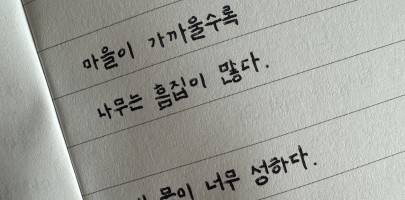 마을이 가까울수록
나무는 흠집이 많다.
몸이 너무 성하다.